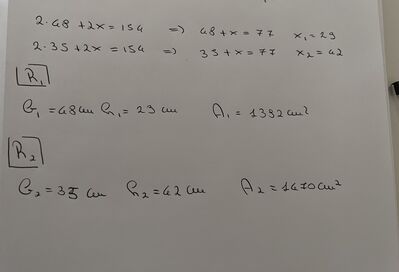 2·48 + 2x = 154 => 48 + x = 77 x₁ = 29
2·35 + 2x = 154 => 35 + x = 77 x₂ = 42
R₁
b₁ = 48 cm h₁ = 29 cm A₁ = 1392 cm²
R₂
b₂ = 35 cm h₂ = 42 cm A₂ = 1470 cm²